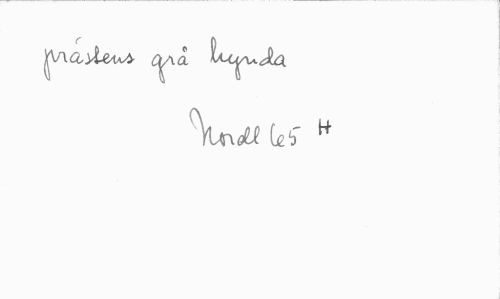 prästens grå hynda
Nordl 65 H